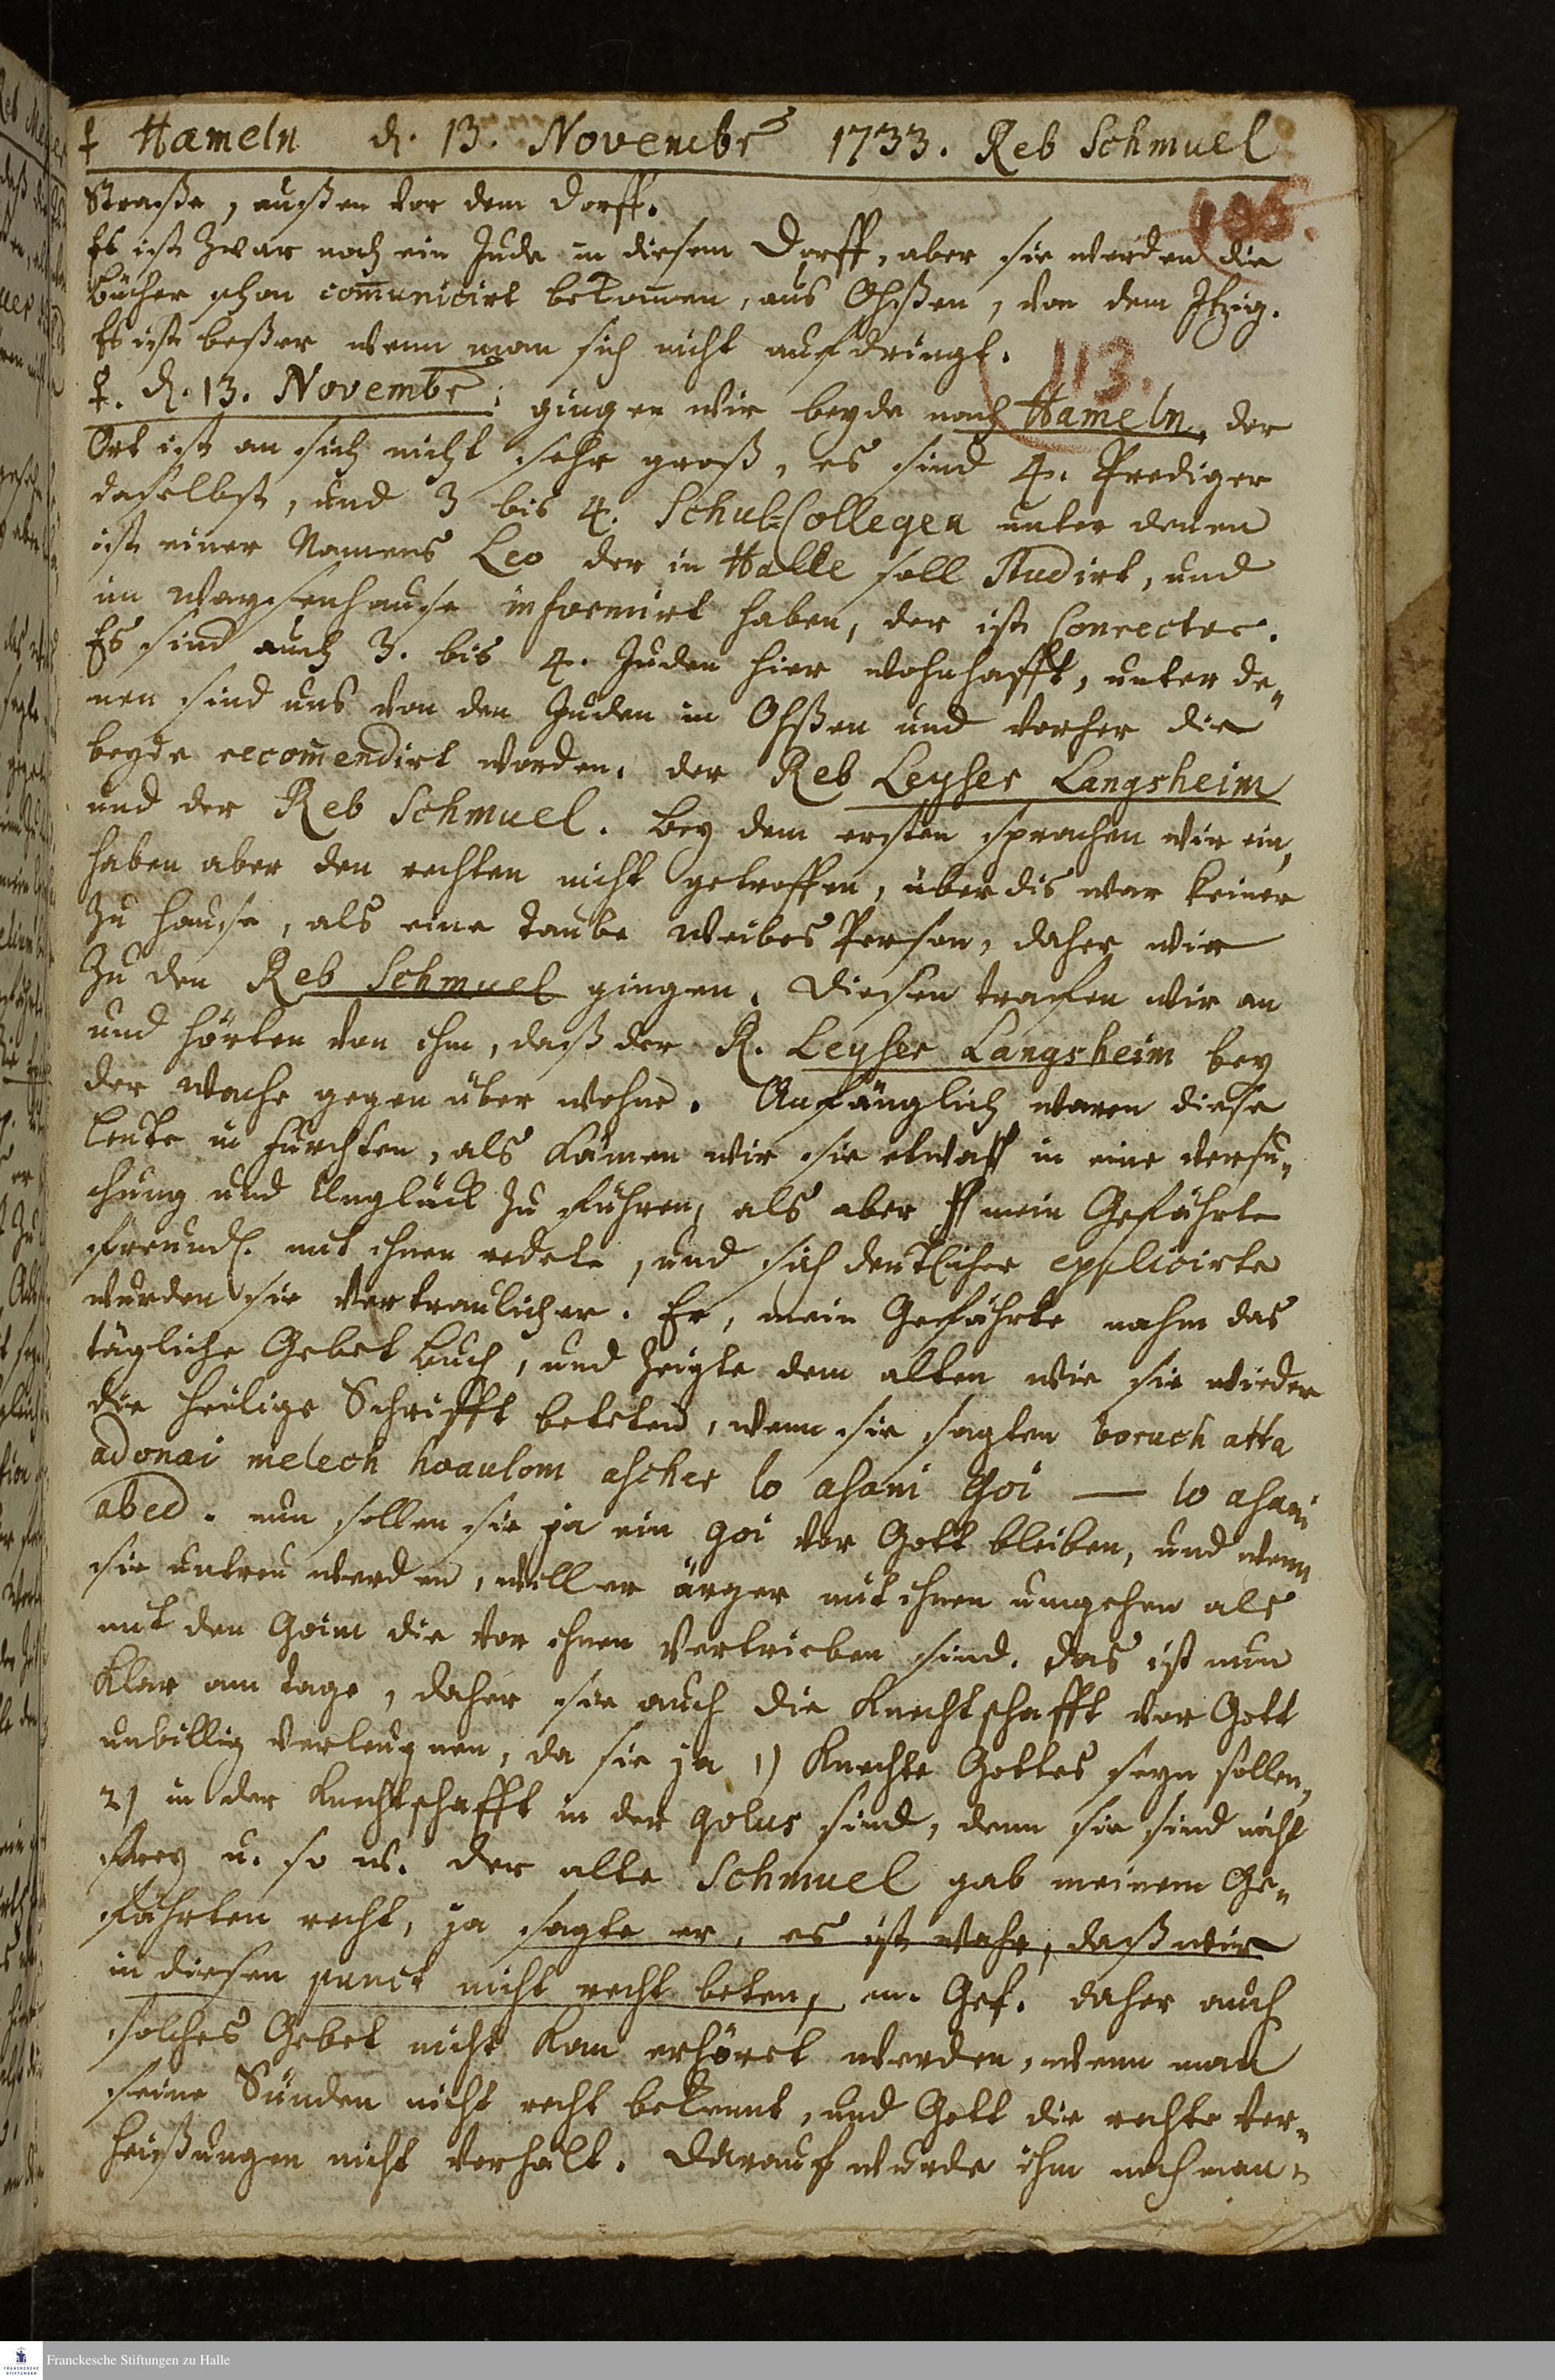 ☿ Hameln d. 13. Novembr 1733. Reb Schmuel
106.
Straße, außen vor dem Dorff.
Es ist zwar noch ein Jude in diesem Dorff, aber sie werden die
Bücher schon com̄unicirt bekom̄en, aus Ohßen, von dem Itzig.
Es ist beßer wenn man sich nicht aufdringt.
113.
d. 13. Novembr: gingen wir beyde nach Hameln, der
Ort ist an sich nicht sehr groß, es sind 4. Prediger
daselbst, und 3 bis 4. Schul-Collegen unter denen
ist einer Namens Leo der in Halle soll studirt, und
im Waysenhause informirt haben, der ist Conrector.
Es sind auch 3. bis 4. Juden hier wohnhafft, unter de-
nen sind uns von den Juden in Ohßen und vorher die
beyde recom̄endirt worden. der Reb Leyser Langsheim
und der Reb Schmuel. Bey dem ersten sprachen wir ein,
haben aber den rechten nicht getroffen, über dis war keiner
zu Hause, als eine taube Weibes Person, daher wir
zu den Reb Schmuel gingen. Diesen trafen wir an
und hörten von ihm, daß der R. Leyser Langsheim bey
der Wache gegen über wohne. Anfänglich waren diese
Leute in Furchten, als kämen wir sie etwa in eine versu-
chung und Unglück zu führen, als aber mein Gefährte
freundl. mit ihnen redete, und sich deutlicher explicirte
wurden sie vertraulicher. Er, mein Gefährte nahm das
tägliche Gebet Buch, und zeigte dem alten wie sie wieder
die heilige Schrifft beteten, wenn sie sagten boruch atta
adonai melech hoaulom ascher lo asani Goi — lo asani
abed. nun sollen sie ja ein goi vor Gott bleiben, und wenn
sie untreu werden, will er ärger mit ihnen umgehen als
mit den Goim die vor ihnen vertrieben sind. das ist nun
klar am tage, daher sie auch die Knechtschafft vor Gott
unbillig verleugnen, da sie ja 1) Knechte Gottes seyn sollen,
2) in der Knechtschafft in der golus sind, denn sie sind nicht
frey u. so w. der alte Schmuel gab meinem Ge-
fährten recht, ja sagte er, es ist wahr, daß wir
in diesen punct nicht recht beten, m. Gef. daher auch
solches Gebet nicht kan erhöret werden, wenn man
seine Sünden nicht recht bekennt, und Gott die rechte Ver-
heißungen nicht vorhält. Darauf wurde ihm noch man-
Franckesche Stiftungen zu Halle